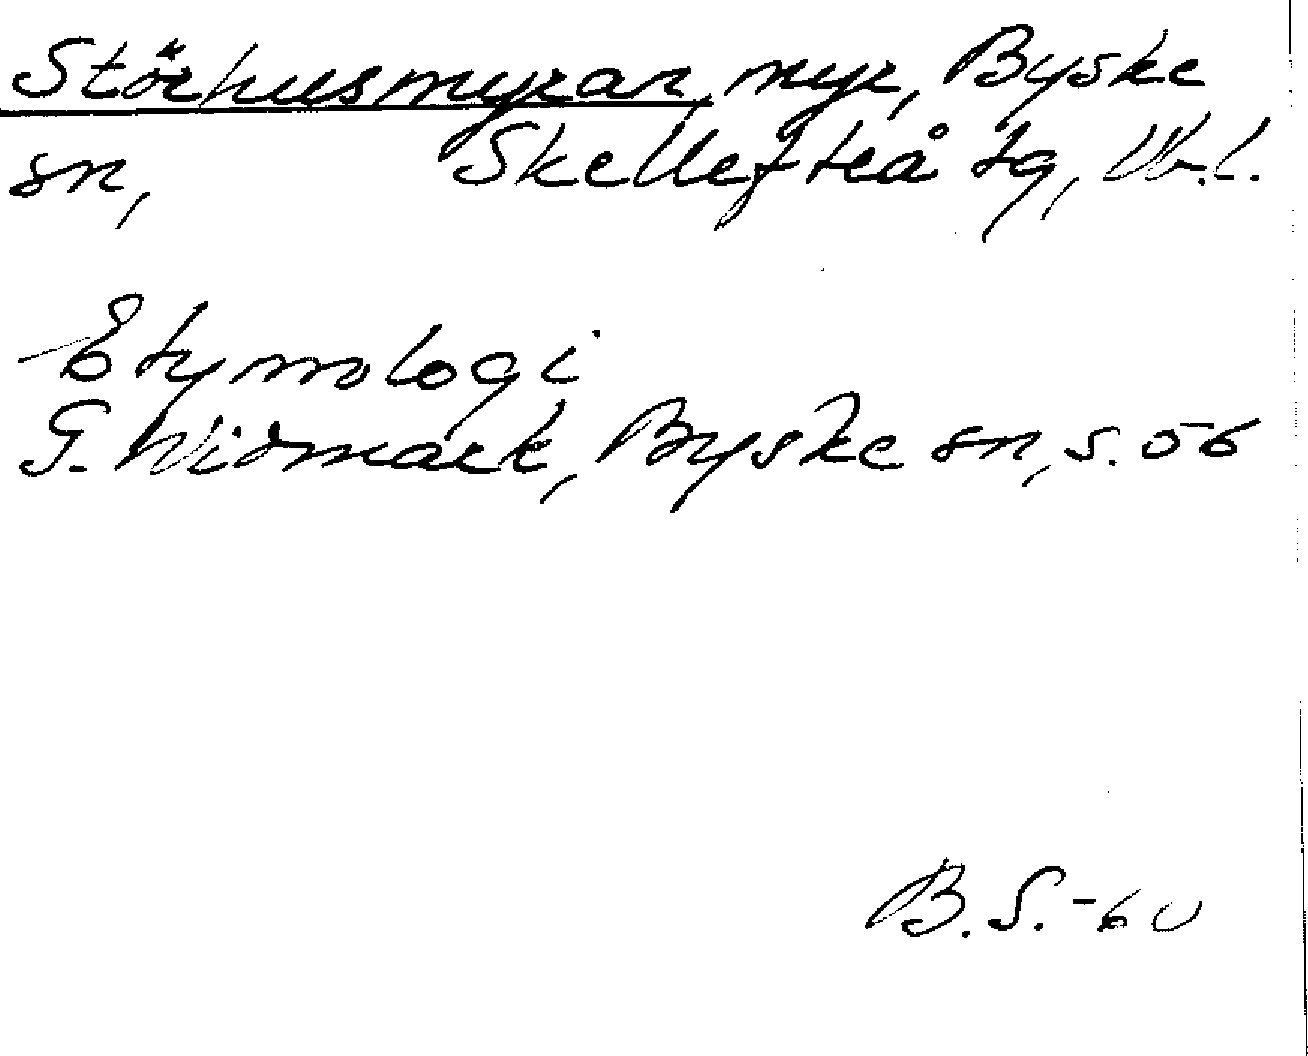 Störhusmyran, myr, Byske
sn, Skellefteå tg, Vb.l.
Etymologi
G. Widmark, Byske sn, s. 56
B.S.-60